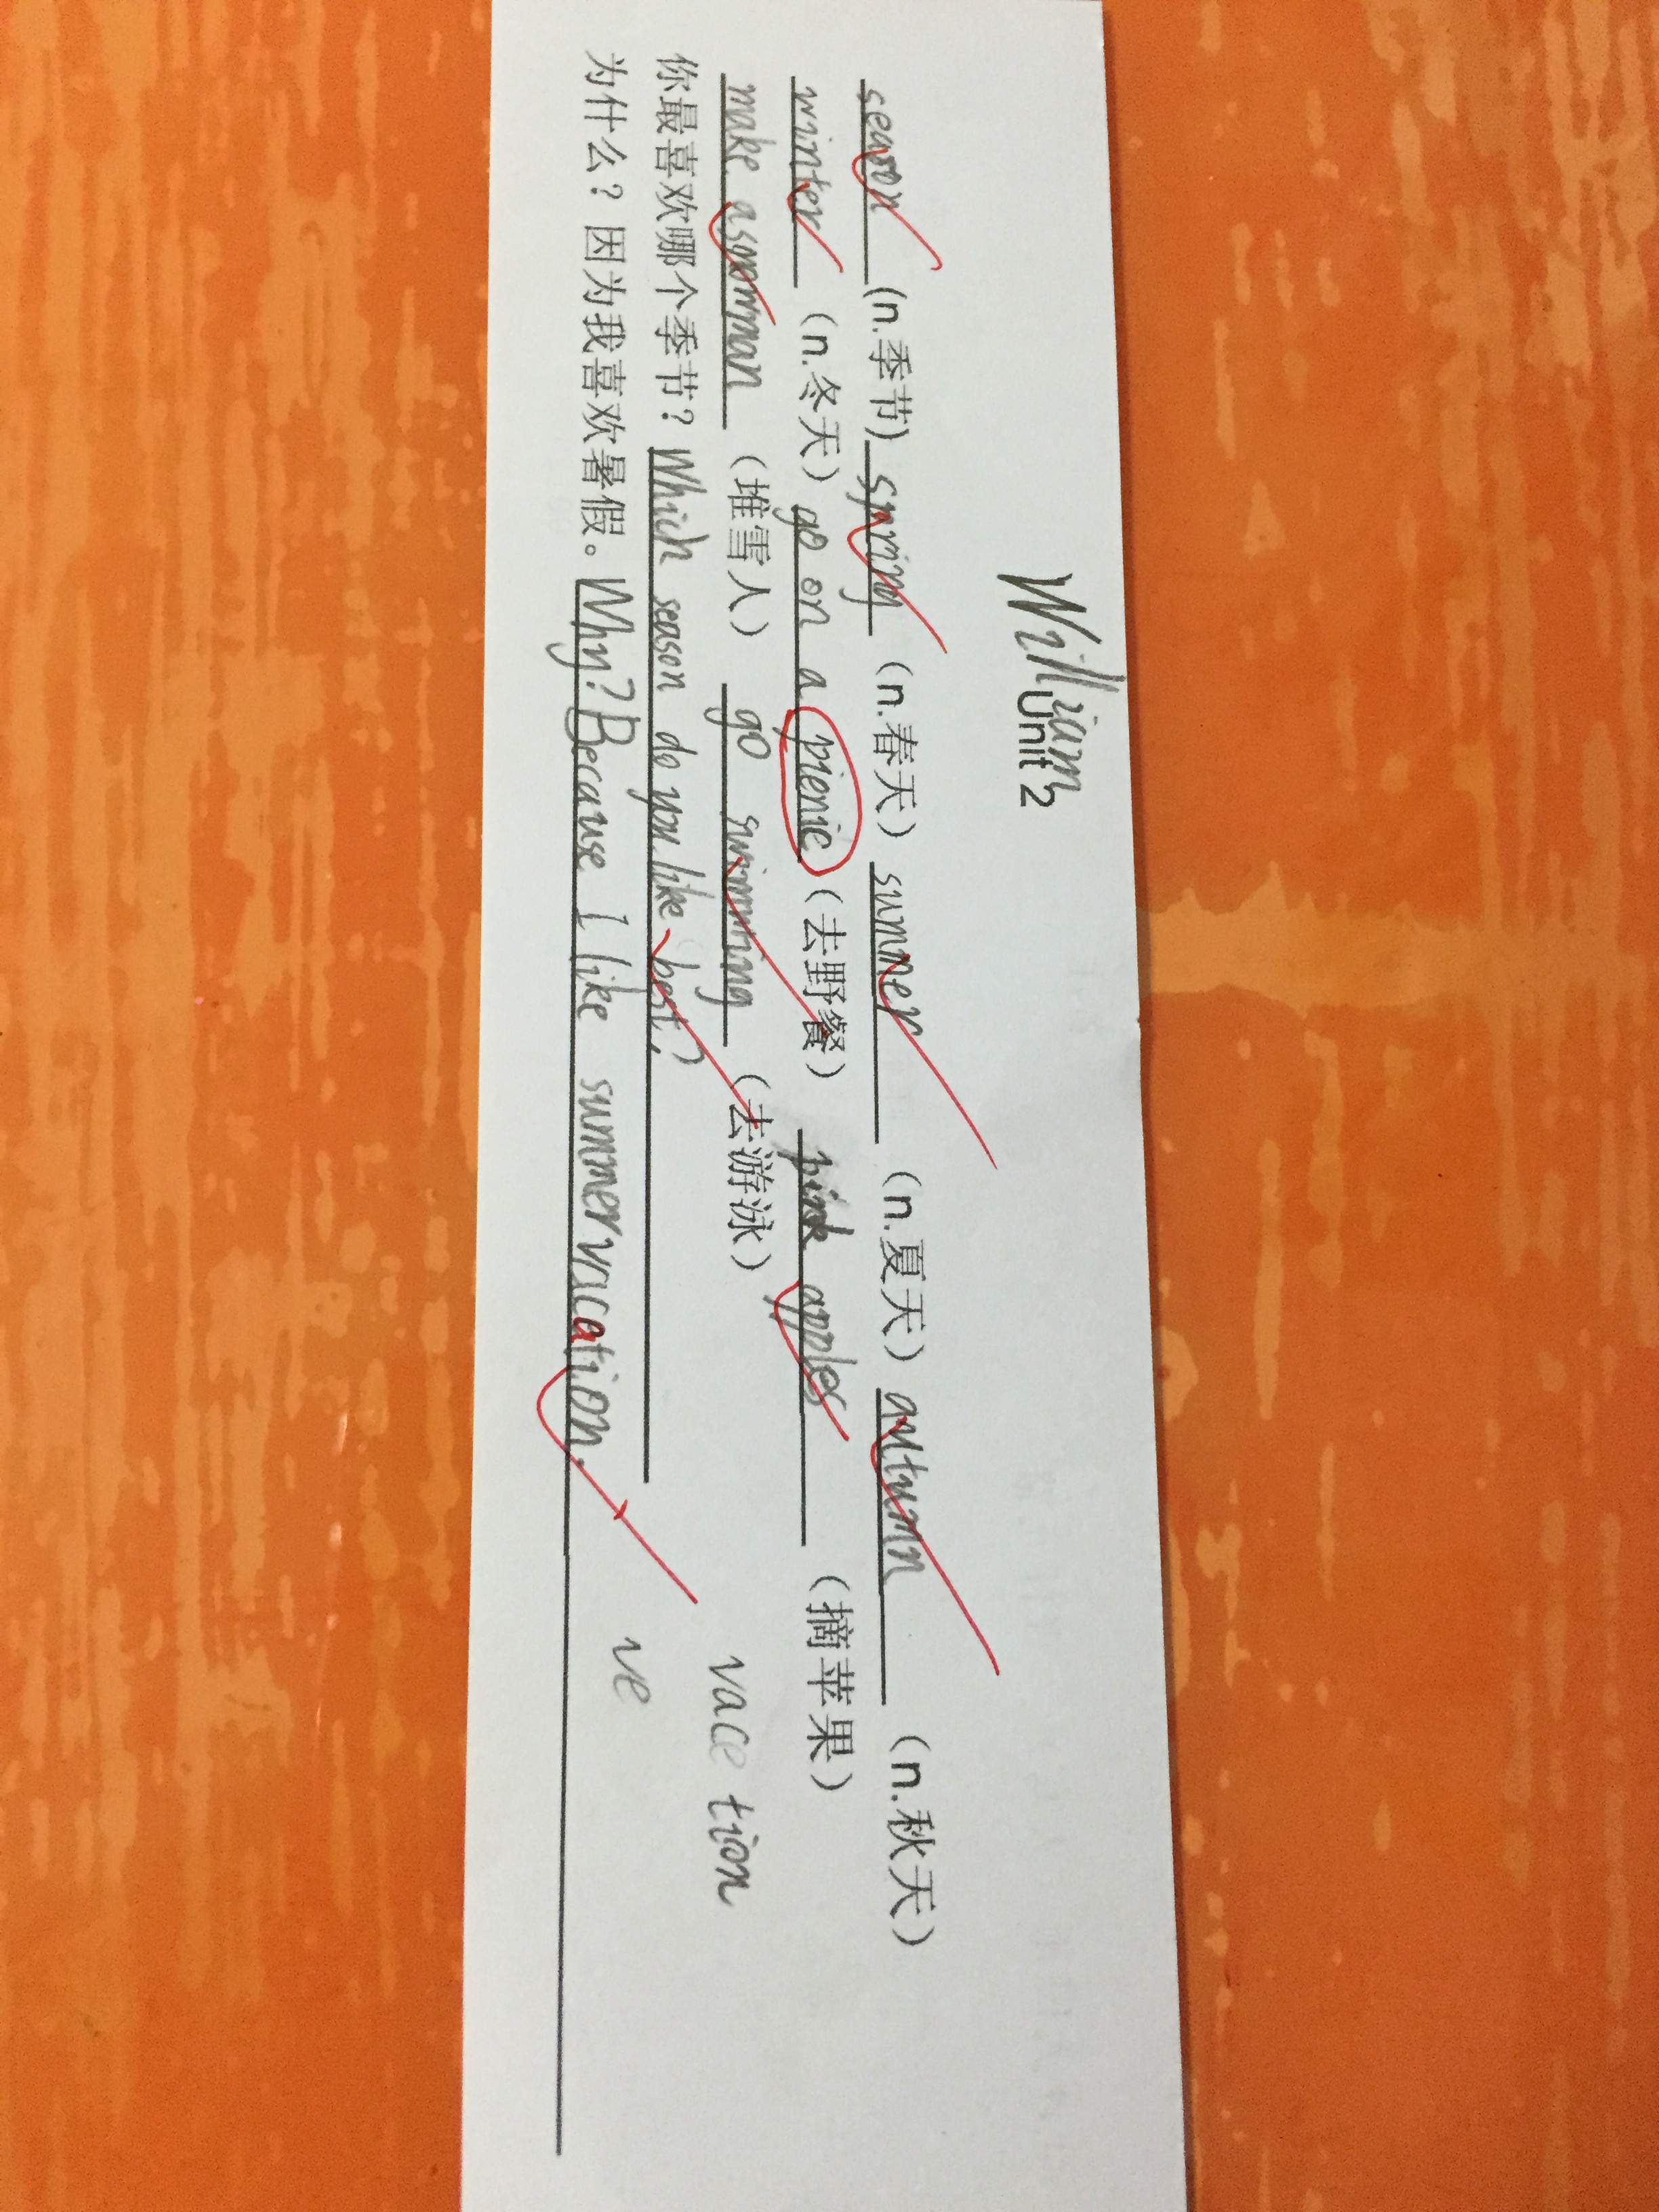 William
Unit 2
season (n.季节) spring (n.春天) summer (n.夏天) autumn (n.秋天)
winter (n.冬天) go on a pienie (去野餐) pink apples (摘苹果)
make a snowman (堆雪人) go swimming (去游泳)
你最喜欢哪个季节? Which season do you like best?
为什么? 因为我喜欢暑假。 Why? Because I like summer vacation.
vace tion
ve